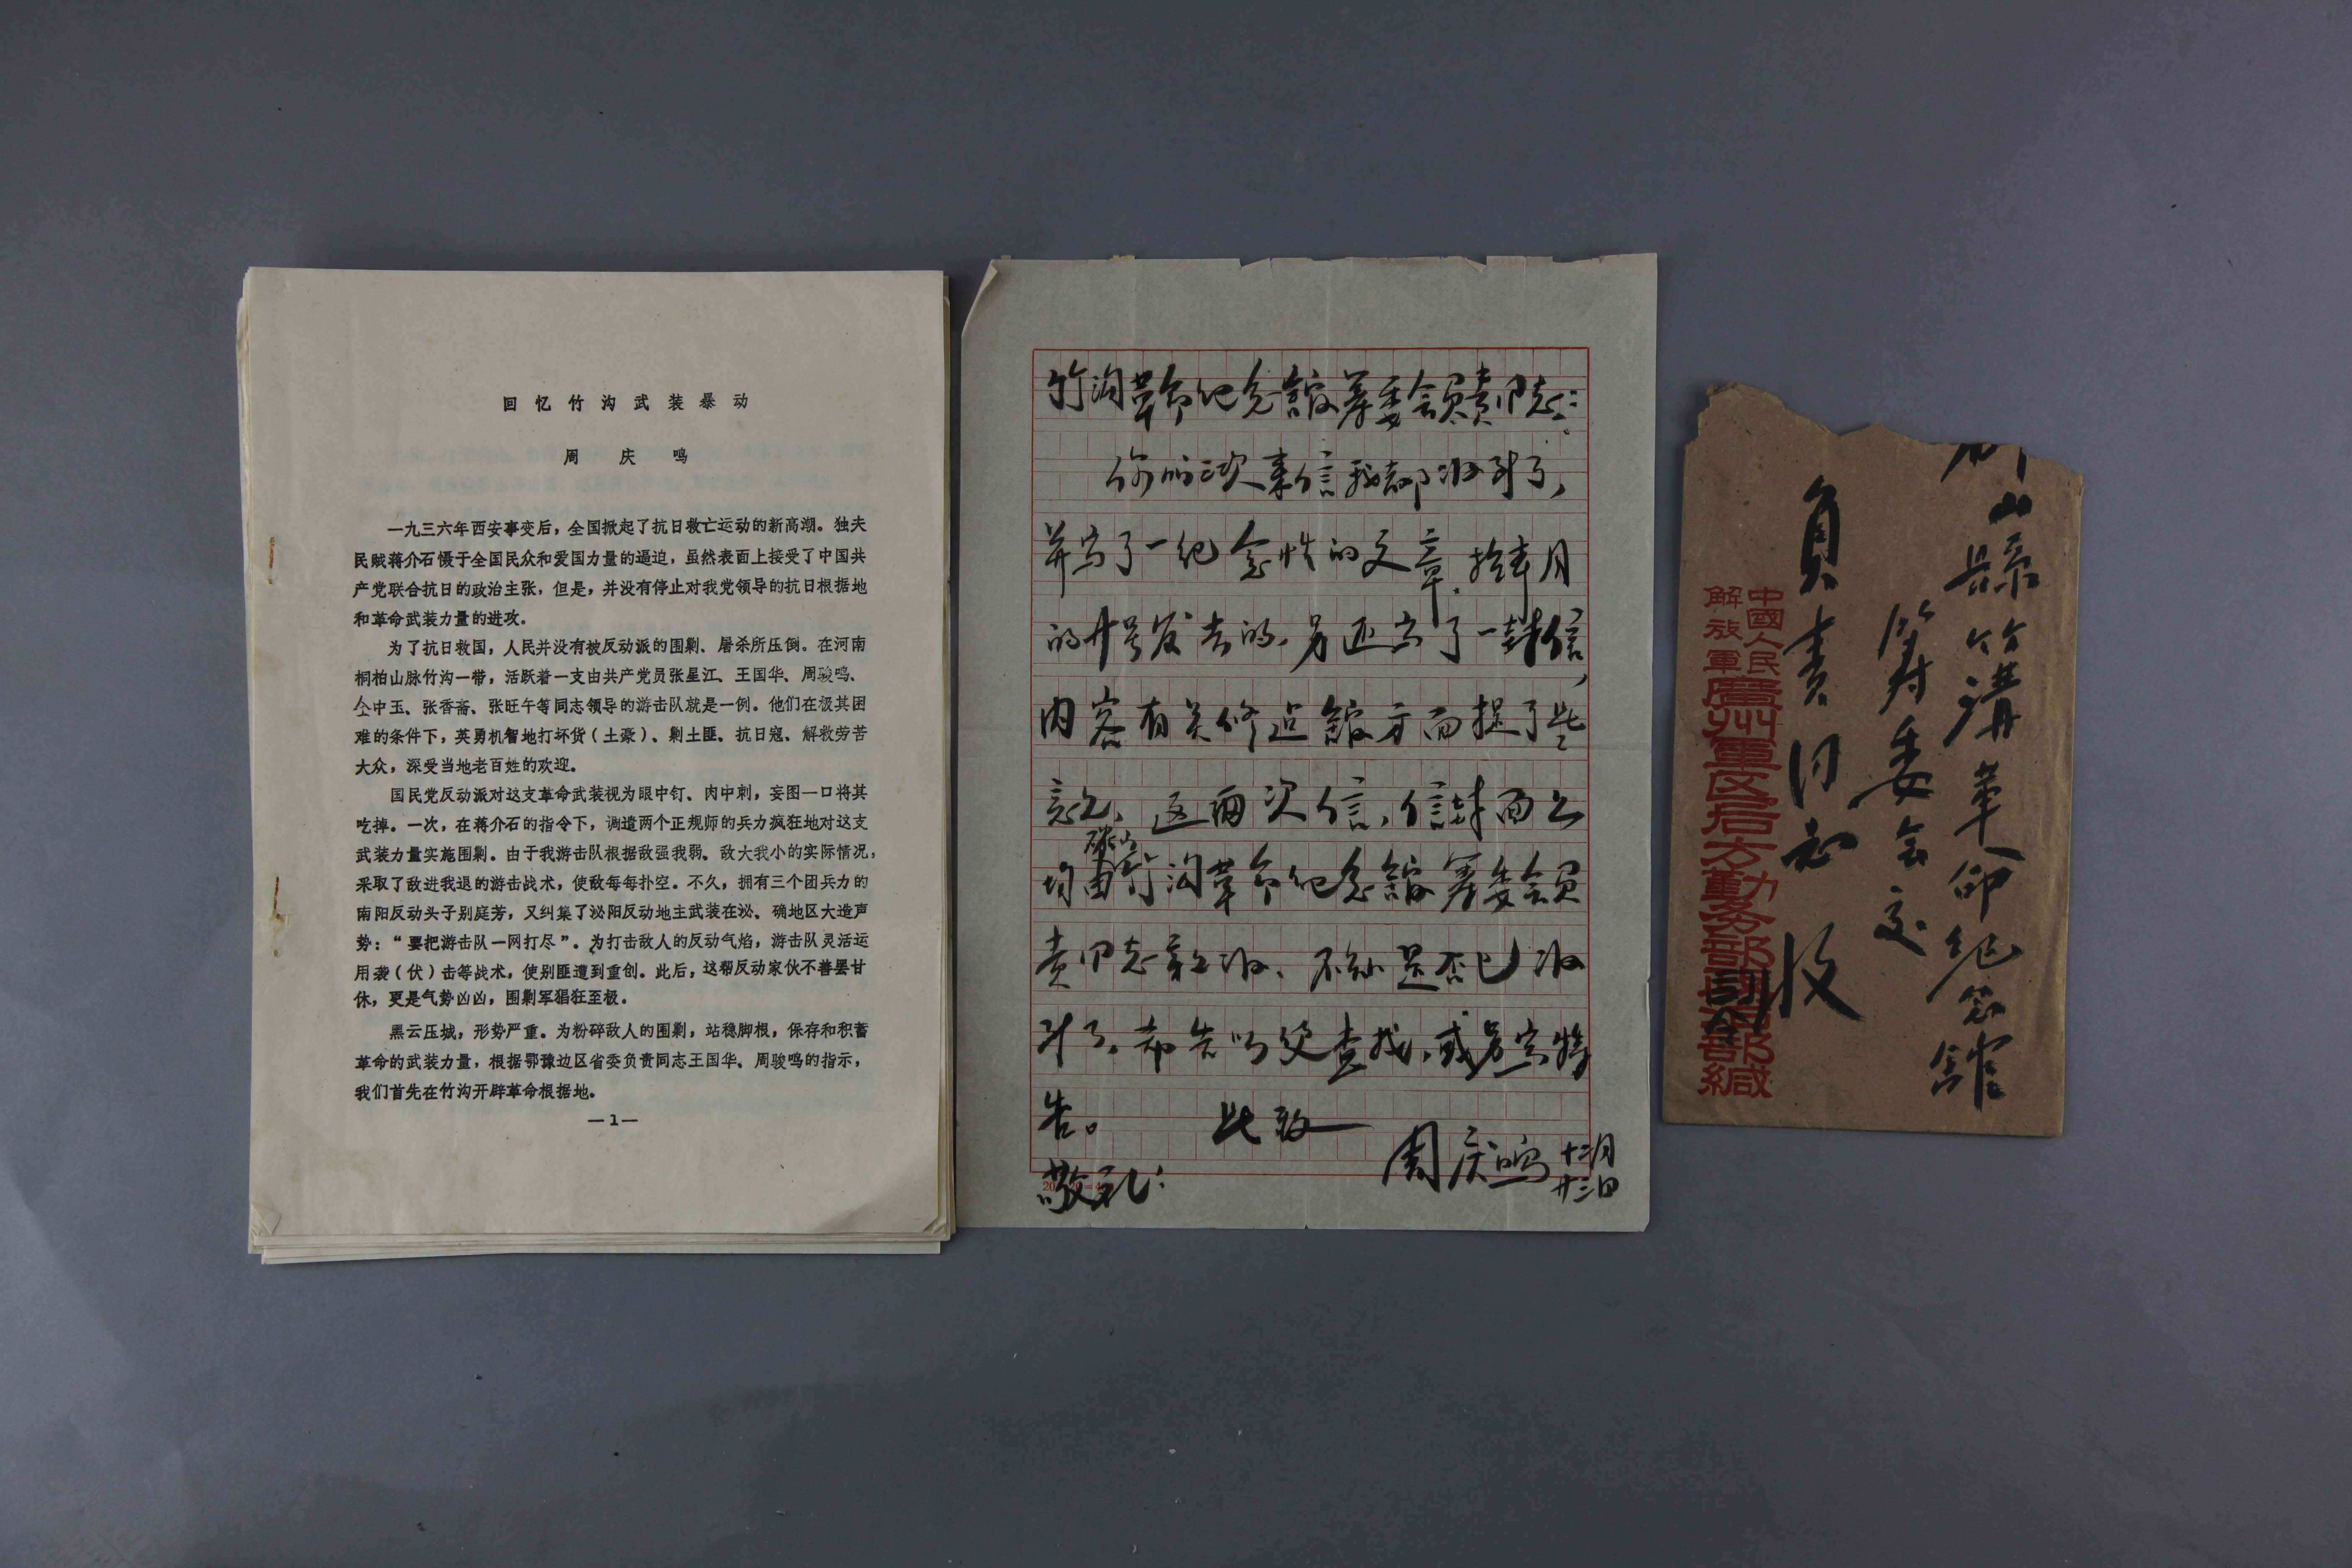 回忆竹沟武装暴动
周庆鸣
一九三六年西安事变后，全国掀起了抗日救亡运动的新高潮。独夫
民贼蒋介石慑于全国民众和爱国力量的逼迫，虽然表面上接受了中国共
产党联合抗日的政治主张，但是，并没有停止对我党领导的抗日根据地
和革命武装力量的进攻。
为了抗日救国，人民并没有被反动派的围剿、屠杀所压倒。在河南
桐柏山脉竹沟一带，活跃着一支由共产党员张星江、王国华、周骏鸣、
仝中玉、张香斋、张旺午等同志领导的游击队就是一例。他们在极其困
难的条件下，英勇机智地打坏货（土豪）、剿土匪、抗日寇、解救劳苦
大众，深受当地老百姓的欢迎。
国民党反动派对这支革命武装视为眼中钉、肉中刺，妄图一口将其
吃掉。一次，在蒋介石的指令下，调遣两个正规师的兵力疯狂地对这支
武装力量实施围剿。由于我游击队根据敌强我弱、敌大我小的实际情况，
采取了敌进我退的游击战术，使敌每每扑空。不久，拥有三个团兵力的
南阳反动头子别庭芳，又纠集了泌阳反动地主武装在泌、确地区大造声
势：“要把游击队一网打尽”。为打击敌人的反动气焰，游击队灵活运
用袭（伏）击等战术，使别匪遭到重创。此后，这帮反动家伙不善罢甘
休，更是气势凶凶，围剿军猖狂至极。
黑云压城，形势严重。为粉碎敌人的围剿，站稳脚根，保存和积蓄
革命的武装力量，根据鄂豫边区省委负责同志王国华、周骏鸣的指示，
我们首先在竹沟开辟革命根据地。
—1—
竹沟革命纪念館筹委会负责同志：
你们三次来信我都收到了，
并写了一纪念性的文章，拾壹月
的廿号发去的，另还写了一封信，
内容有关修追館方面提了些
意见，这两次信，信封面上
确山
均由竹沟革命纪念館筹委会负
责同志亲收，不知是否已收
到了，希告以便查找，或另寄特
告。 此致
敬礼！
周庆鸣 十二月
廿三日
山縣竹溝革命纪念館
筹委会交
負责同志 收
中國人民
解放軍
廣州軍区后方勤务部
部緘